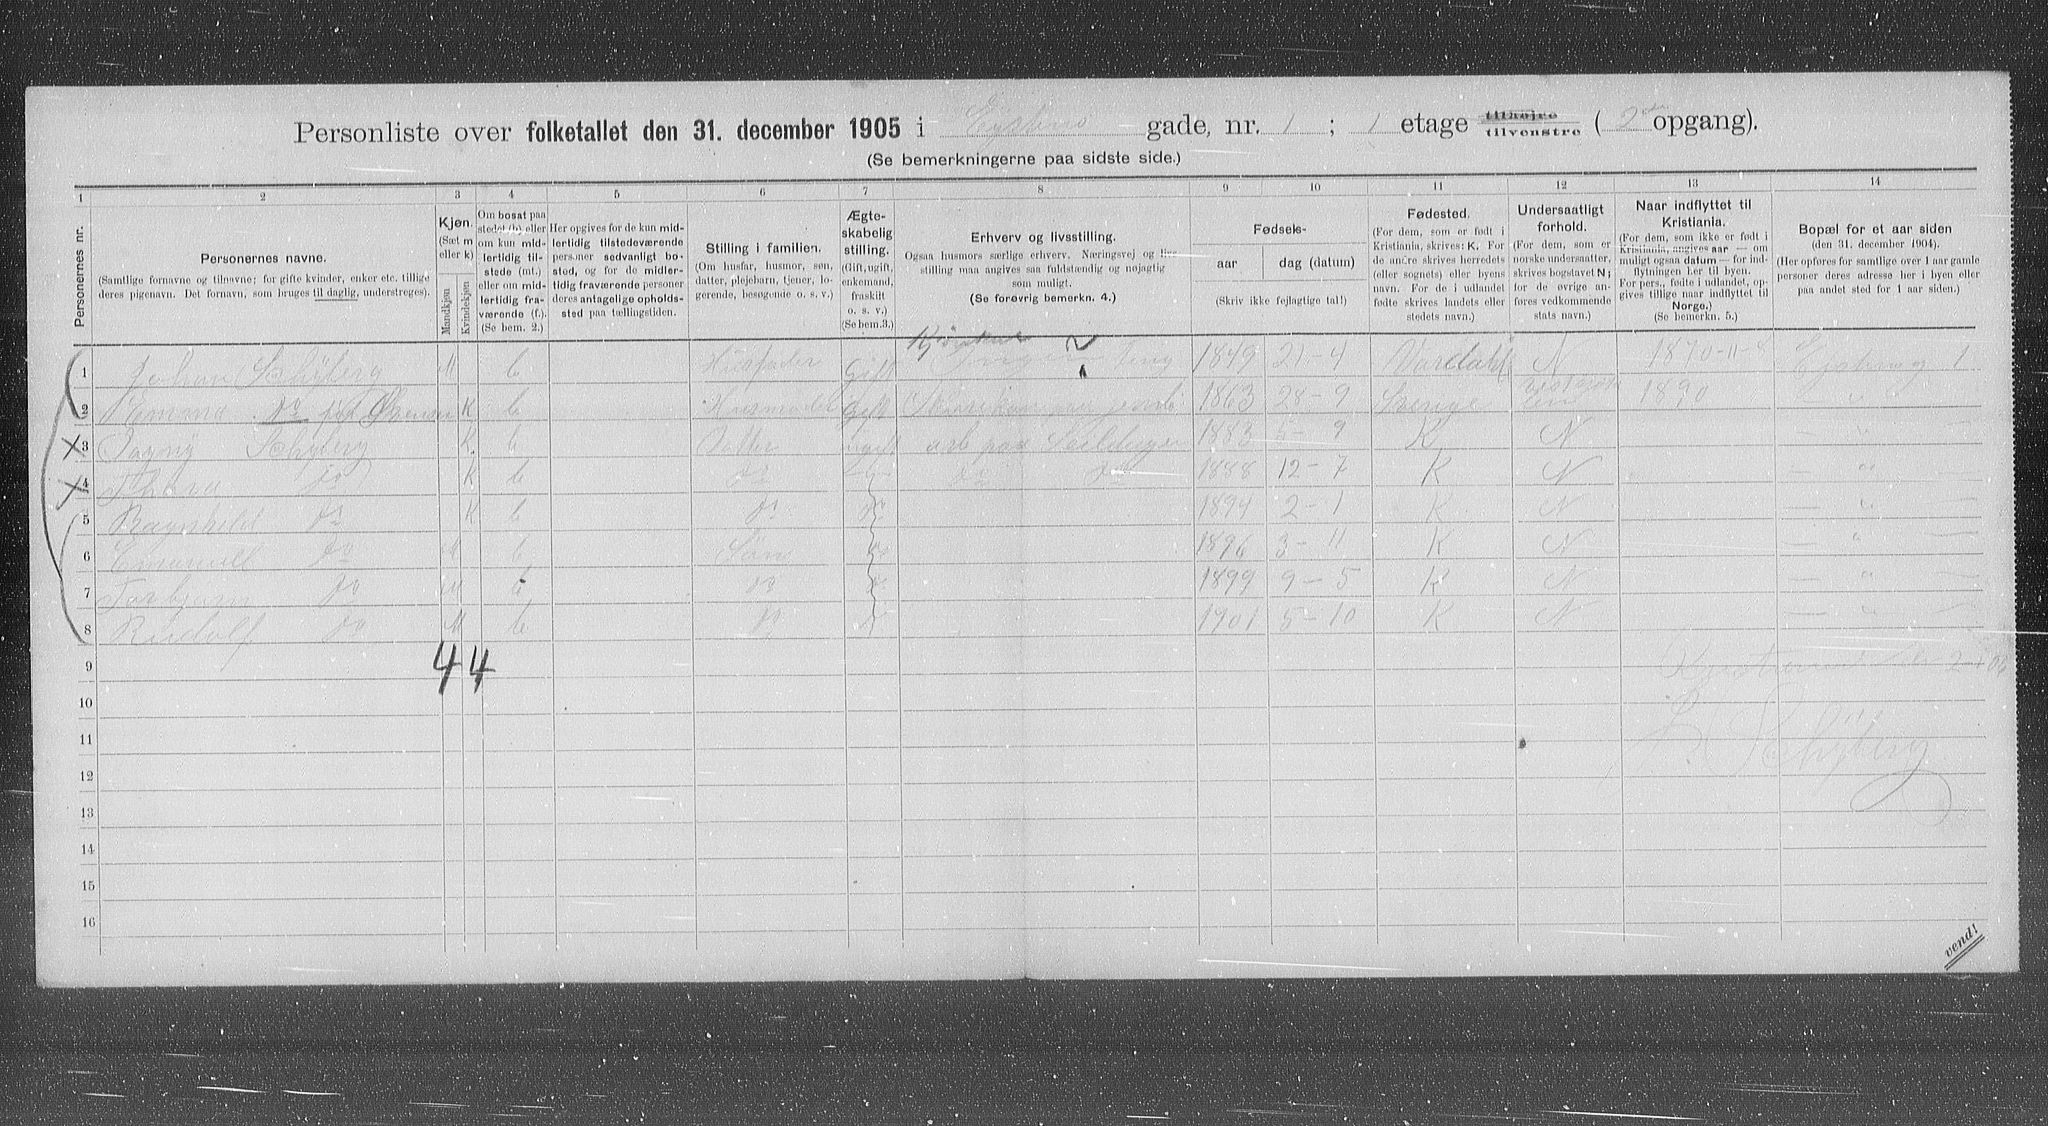 Personliste over folketallet den 31. december 1905 i gade, nr. 1 ; 1 etage tilhøjre tilvenstre ( 2den opgang).
(Se bemerkningerne paa sidste side.)
1 2 3 4 5 6 7 8 9 10 11 12 13 14
Personernes nr.
Personernes navne.
(Samtlige fornavne og tilnavne; for gifte kvinder, enker etc. tillige deres pigenavn. Det fornavn, som bruges til daglig, understreges).
Kjøn.
(Sæt m eller k)
Mandkjøn
Kvindekjøn
Om bosat paa stedet (b) eller om kun midlertidig tilstede (mt.) eller om midlertidig fraværende (f.) (Se bem. 2.)
Her opgives for de kun midlertidig tilstedeværende personer sedvanligt bosted, og for de midlertidig fraværende personer deres antagelige opholdssted paa tællingstiden.
Stilling i familien.
(Om husfar, husmor, søn, datter, plejebarn, tjener, logerende, besøgende o. s. v.)
Ægteskabelig stilling.
(Gift, ugift, enkemand, fraskilt o. s. v.) (Se bem. 3.)
Erhverv og livsstilling.
Ogsaa husmors særlige erhverv. Næringsvej og livsstilling maa angives saa fuldstændig og nøjagtig som muligt.
(Se forøvrig bemerkn. 4.)
Fødsels-
aar
dag (datum)
(Skriv ikke fejlagtige tal!)
Fødested.
(For dem, som er født i Kristiania, skrives: K. For de andre skrives herredets (eller sognets) eller byens navn. For de i udlandet fødte skrives landets eller stedets navn.)
Undersaatligt forhold.
(For dem, som er norske undersaatter, skrives bogstavet N; for de øvrige anføres vedkommende stats navn.)
Naar indflyttet til Kristiania.
(For dem, som ikke er født i Kristiania, angives aar — om muligt ogsaa datum — for indflytningen her til byen. For pers., fødte i udlandet, opgives tillige naar indflyttet til Norge.)
(Se bemerkn. 5.)
Bopæl for et aar siden
(den 31. december 1904).
(Her opføres for samtlige over 1 aar gamle personer deres adresse her i byen eller paa andet sted for 1 aar siden.)
1 Johan Schyberg M b Husfader Gift 1849 21-4 Vardal N 1
2 Emma do K b Gift 1863 28-9 Sverige 1890 — " —
3 Dagny Schyberg K b Datter ugift arb paa 1883 5-9 K N — " —
4 Thora do K b do do do 1888 12-7 K N — " —
5 Ragnhild do K b do do 1894 2-1 K N — " —
6 Emanuell do M b Søn do 1896 3-11 K N — " —
7 Torbjørn do M b do do 1899 9-5 K N — " —
8 Rudolf do M b do 1901 5-10 K N — " —
9 4 4
10
11 Schyberg
12
13
14
15
16
vend!